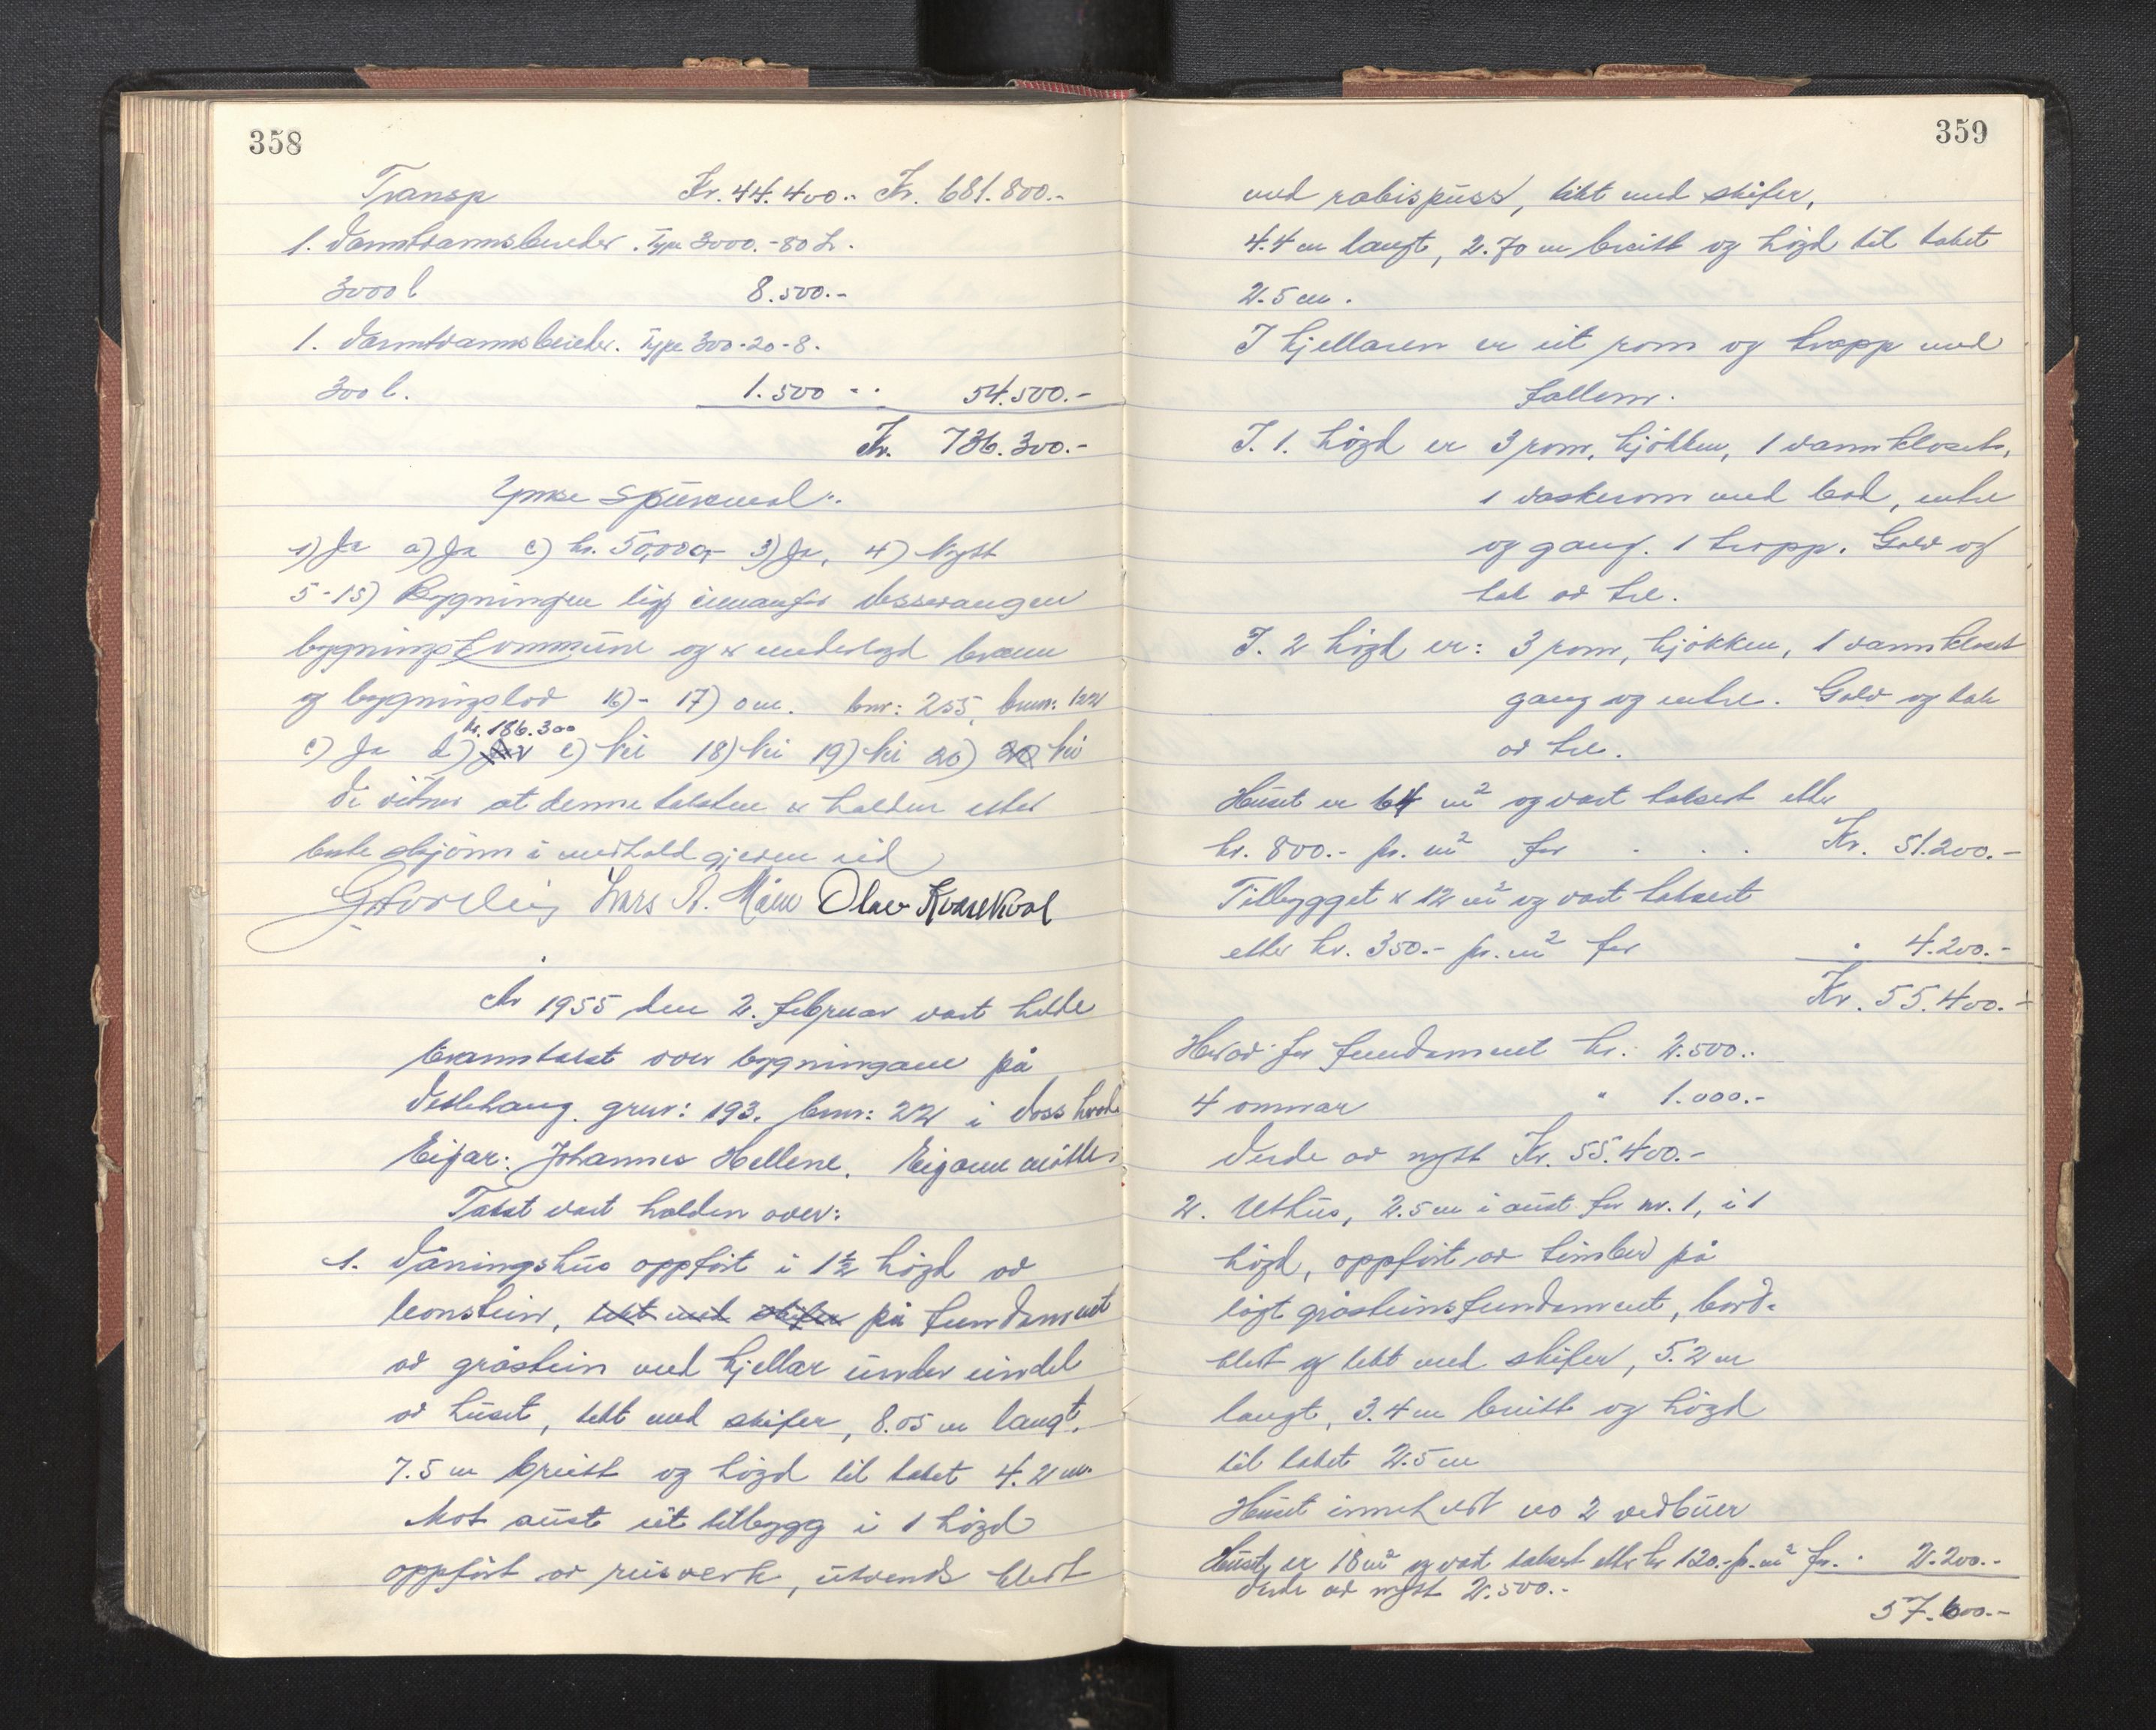 358
Transp Kr. 44.400.- Kr. 681.800.-
1. Varmtvannsbereder. Type 3000.-80 L.
3000 l 8.500.-
1. Varmtvannsbereder. Type 300-20-8.
300 l. 1.500 -.- 54.500.-
Kr. 736.300.-
Ymse Spursmål:
1) Ja a) Ja c) kr. 50,000,- 3) Ja, 4) Nytt
5-15) Bygningen ligg innanfor Vossevangen
bygningskommune og er underlagd brann
og bygningslov 16)- 17) bnr: 255,
kr. 186.300
c) Ja d) e) Nei 18) Nei 19) Nei 20) Nei
Vi vitnar at denne taksten er halden etter
beste skjönn i medhald gjeven eid
Lars A. Møen Olav Kvarekvål
År 1955 den 2. februar vart helde
branntakst over bygningane på
Vetlehaug. gnr: 193. bnr: 22 i Voss herad
Eigar: Johannes Hellene. Eigaren mötte.
Takst vart halden over:
1. Våningshus oppfört i 1½ högd av
leonstein, tekt med skifer på fundament
av gråstein med kjellar under eindel
av huset, tekt med skifer, 8.05 m langt,
7.5 m breitt og högd til taket 4.2 m.
Mot aust eit tilbygg i 1 högd
oppfört av reisverk, utvends kledt
359
med rabispuss, tekt med skifer,
4.4 m langt, 2.70 m breitt og högd til taket
2.5 m.
I kjellaren er eit rom og trapp med
fallem.
I. 1. högd er 3 rom, kjökken, 1 vannklosett,
1 vaskerom med bad, entre
og gang. 1 trapp. Golv og
tak av tre.
I. 2 högd er: 3 rom, kjökken, 1 vannklosett
gang og entre. Golv og tak
av tre.
Huset er 64 m² og vart taksert etter
kr. 800.- pr. m² for . . . Kr. 51.200.-
Tilbygget er 12 m² og vart taksert
etter kr. 350.- pr. m² for " 4.200.-
Kr. 55.400.-
Herav for fundament kr. 2.500.-
4 omnar " 1.000.-
Verde av nytt Kr. 55.400.-
2. Uthus, 2.5 m i aust for nr. 1, i 1
högd, oppfört av timber på
lågt gråsteinsfundament, bord-
kledt og tekt med skifer, 5.2 m
langt, 3.4 m breitt og högd
til taket 2.5 m
Huset inneheld 2 vedbuer
Huset er 18 m² og vart taksert etter kr 120.- pr. m² for. . 2.200.-
Verde av nytt 2.500.-
57.600.-